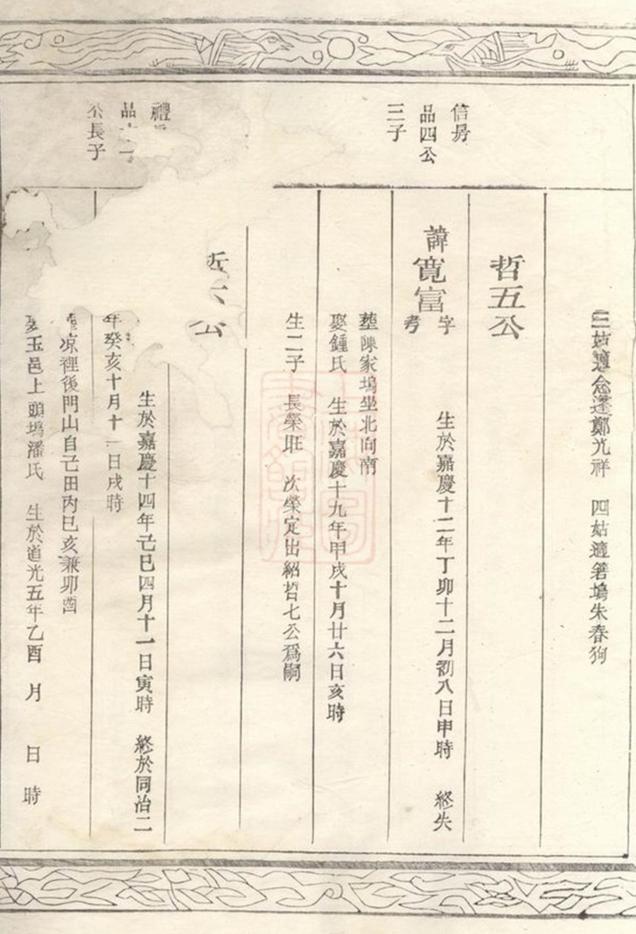 三姑適念遂鄭光祥 四姑適箬塢朱春狗
信房
品四公
三子
哲五公
諱寬富
字 生於嘉慶十二年丁卯十二月初八日申時 終失
考
葬陳家塢坐北向南
娶鍾氏 生於嘉慶十九年甲戌十月廿六日亥時
生二子 長榮旺 次榮定出紹哲七公爲嗣
禮
品
公長子
哲六公
生於嘉慶十四年己巳四月十一日寅時 終於同治二
年癸亥十月十一日戌時
凉裡後門山自己田丙巳亥兼卯酉
娶玉邑上頭塢潘氏 生於道光五年乙酉 月 日 時